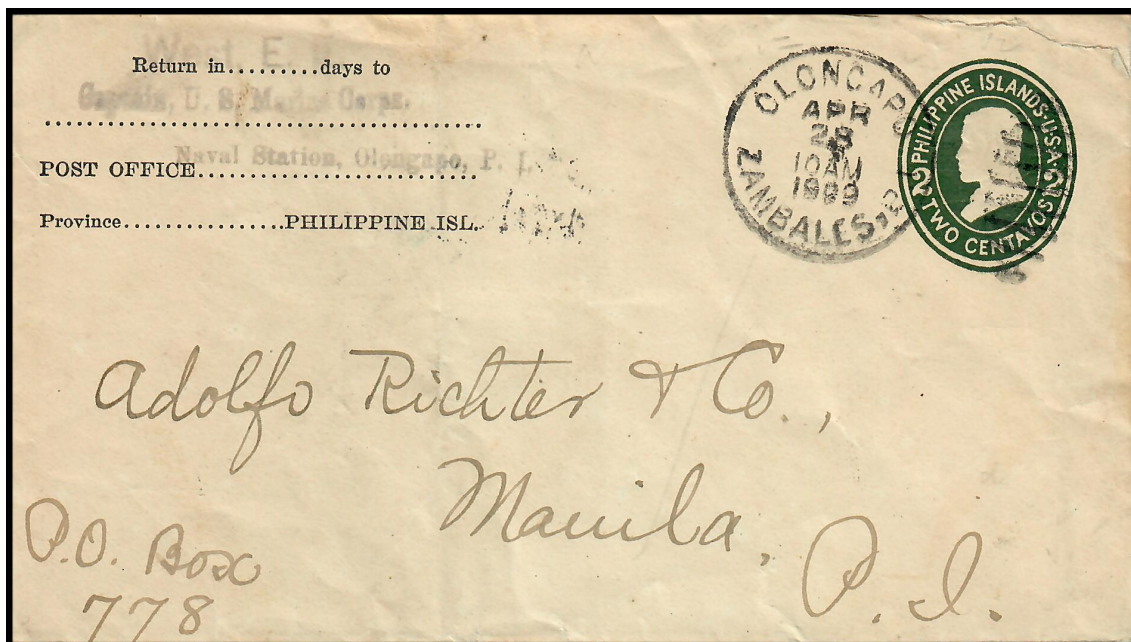 Return in.........days to
Captain, U. S. Marine Corps.
Naval Station, Olongapo, P. I.
POST OFFICE............................
Province................PHILIPPINE ISL.
OLONGAPO
APR
28
10AM
ZAMBALES, P.
PHILIPPINE ISLANDS·U·S·A·
2 TWO CENTAVOS 2
Adolfo Richter & Co.,
Manila,
P. I.
P.O. Box
778